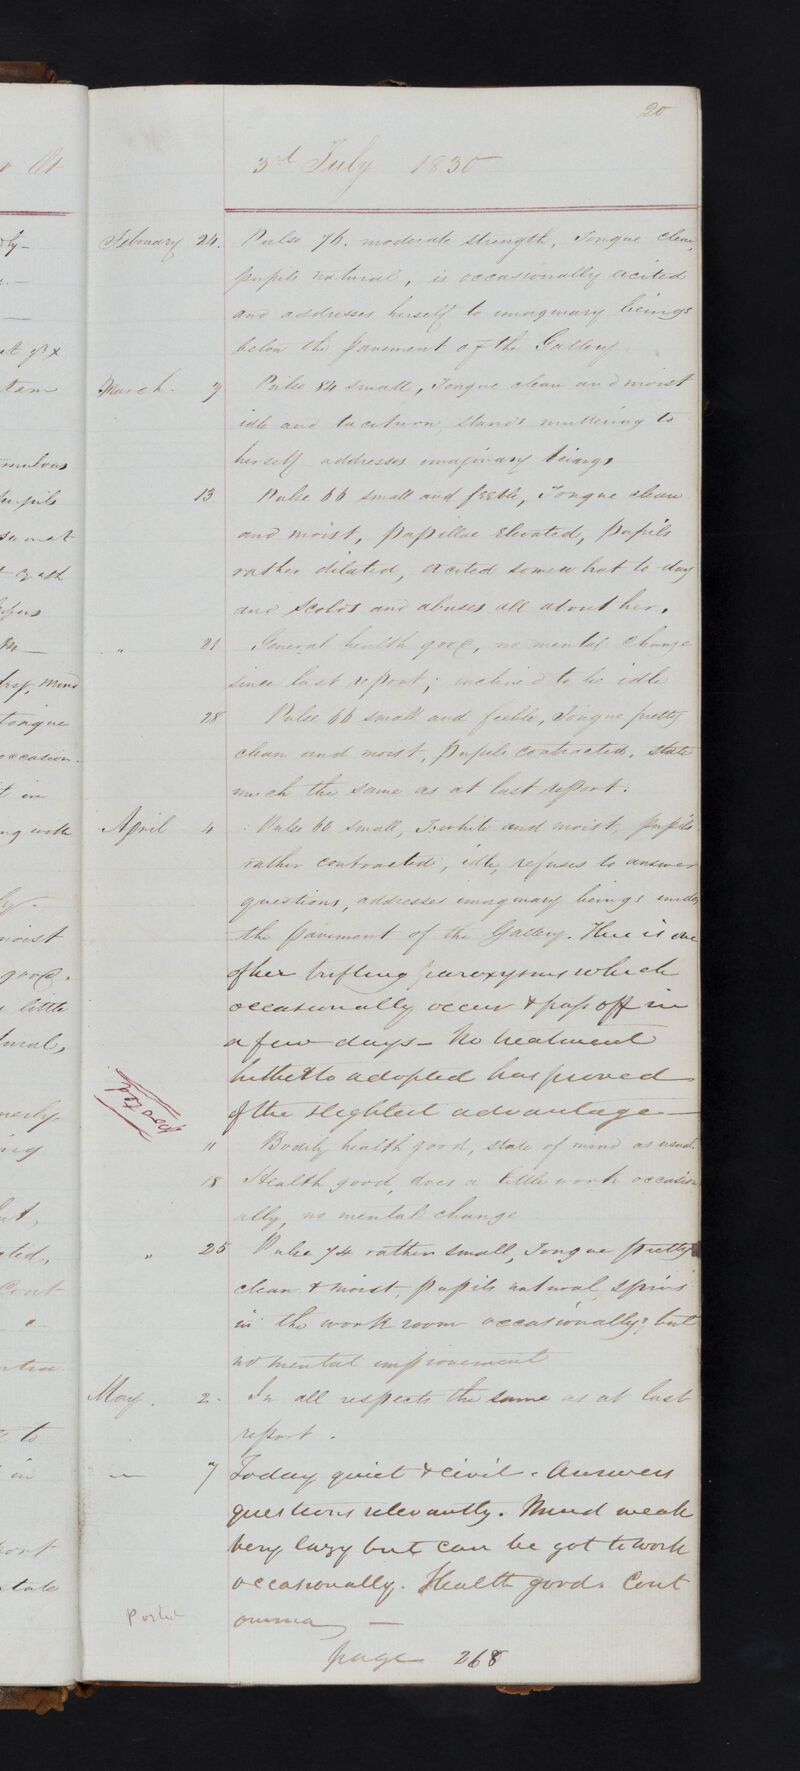 20
3rd July 1830
February 24. Pulse 76. moderate strength, Tongue clean,
pupils natural, is occasionally excited
and addresses herself to imaginary beings
below the pavement of the Gallery.
March. 7 Pulse 84 small, Tongue clean and moist
idle and taciturn, stands muttering to
herself addresses imaginary beings
13 Pulse 66 small and feeble, Tongue clean
and moist, papillae elevated, pupils
rather dilated, excited somewhat to day
and scolds and abuses all about her.
" 21 General health good, no mental change
since last report; inclined to be idle
28 Pulse 66 small and feeble, Tongue pretty
clean and moist, pupils contracted. state
much the same as at last report.
April 4 Pulse 60 small, T. white and moist, pupils
rather contracted, idle, refuses to answer
questions, addresses imaginary beings under
the pavement of the Gallery. This is one
of her trifling paroxysms which
occasionally occur & pass off in
a few days — No treatment
hitherto adopted has proved
of the slightest advantage —
Posted
11 Bodily health good, state of mind as usual.
18 Health good, does a little work occasion
ally, no mental change
" 25 Pulse 74 rather small, Tongue pretty
clean & moist, pupils natural, spins
in the work room occasionally, but
no mental improvement
May. 2. In all respects the same as at last
report.
— 7 Today quiet & civil. Answers
questions relevantly. Mind weak
very lazy but can be got to work
occasionally. Health good. Cont
omnia —
Posted
page 268